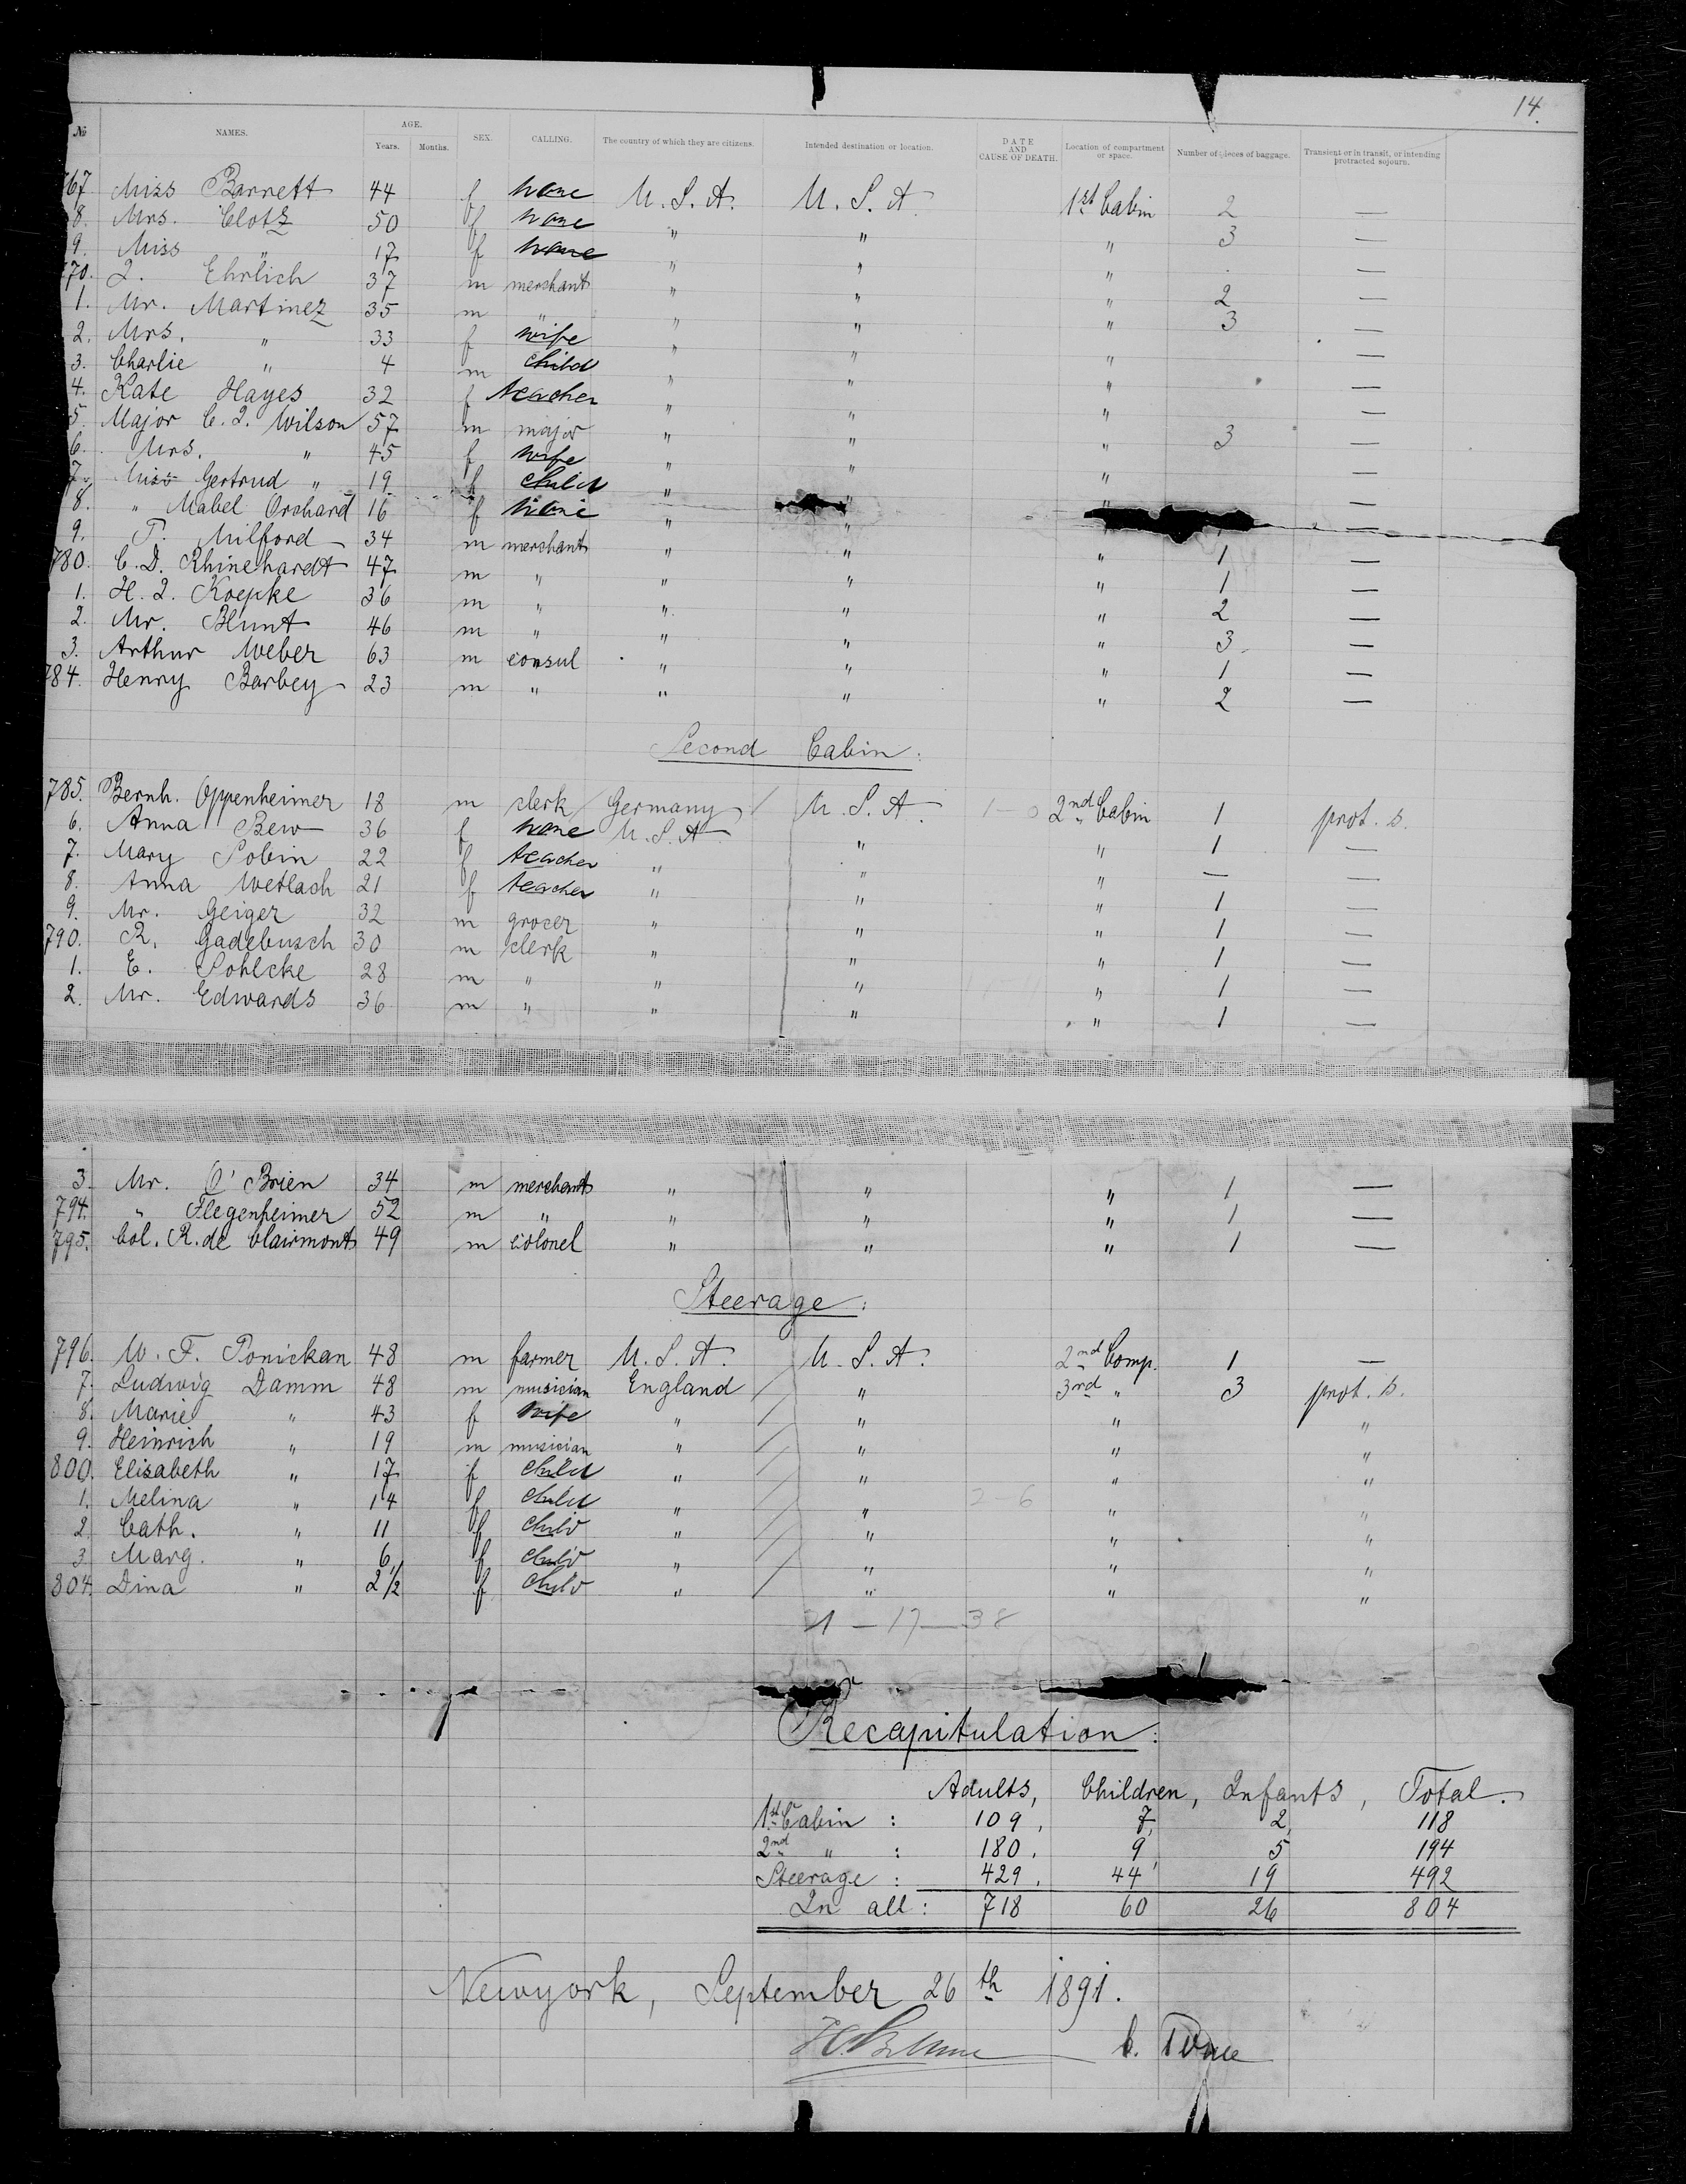 14.
No NAMES. AGE. Years. Months. SEX. CALLING. The country of which they are citizens. Intended destination or location. DATE AND CAUSE OF DEATH. Location of compartment or space. Number of pieces of baggage. Transient or in transit, or intending protracted sojourn.
67. Miss Barrett 44 f none U. S. A. U. S. A. 1st Cabin 2 —
8. Mrs. Clotz 50 f none " " " 3 —
9. Miss " 17 f none " " " —
70. I. Ehrlich 37 m merchant " " " 2 —
1. Mr. Martinez 35 m " " " " 3 —
2. Mrs. " 33 f wife " " " —
3. Charlie " 4 m child " " " —
4. Kate Hayes 32 f teacher " " " —
5. Major C. I. Wilson 57 m major " " " 3 —
6. Mrs. " 45 f wife " " " —
7. Miss Gertrud " 19 f child " " " —
8. " Mabel Orchard 16 f none " "
9. T. Milford 34 m merchant " " " 1 —
780. C. D. Rhinehardt 47 m " " " " 1 —
1. H. I. Koepke 36 m " " " " 2 —
2. Mr. Blunt 46 m " " " " 3 —
3. Arthur Weber 63 m consul " " " 1 —
784. Henry Barbey 23 m " " " " 2 —
Second Cabin:
785. Bernh. Oppenheimer 18 m clerk Germany / U. S. A. 1 - 0 2nd Cabin 1 prot. s.
6. Anna Bew 36 f none U. S. A. " " 1 —
7. Mary Sobin 22 f teacher " " " — —
8. Anna Wetlach 21 f teacher " " " 1 —
9. Mr. Geiger 32 m grocer " " " 1 —
790. R. Gadebusch 30 m clerk " " " 1 —
1. E. Sohlcke 28 m " " " " 1 —
2. Mr. Edwards 36 m " " " " 1 —
3. Mr. O'Brien 34 m merchant " " " 1 —
794. " Flegenheimer 52 m " " " " 1 —
795. Col. R. de Clairmont 49 m colonel " " " 1 —
Steerage:
796. W. F. Ponickan 48 m farmer U. S. A. U. S. A. 2nd Comp. 1 —
7. Ludwig Damm 48 m musician England / " 3rd " 3 prot. s.
8. Marie " 43 f wife " / " " "
9. Heinrich " 19 m musician " / " " "
800. Elisabeth " 17 f child " / " " "
1. Melina " 14 f child " / " 2 - 6 " "
2. Cath. " 11 f child " / " " "
3. Marg. " 6 f child " / " " "
804. Dina " 2 1/2 f child " / " " "
21 — 17 — 38
Recapitulation:
Adults, Children, Infants, Total.
1st Cabin : 109, 7, 2, 118
2nd " : 180, 9 5 194
Steerage : 429, 44 19 492
In all : 718 60 26 804
Newyork, September 26th 1891.